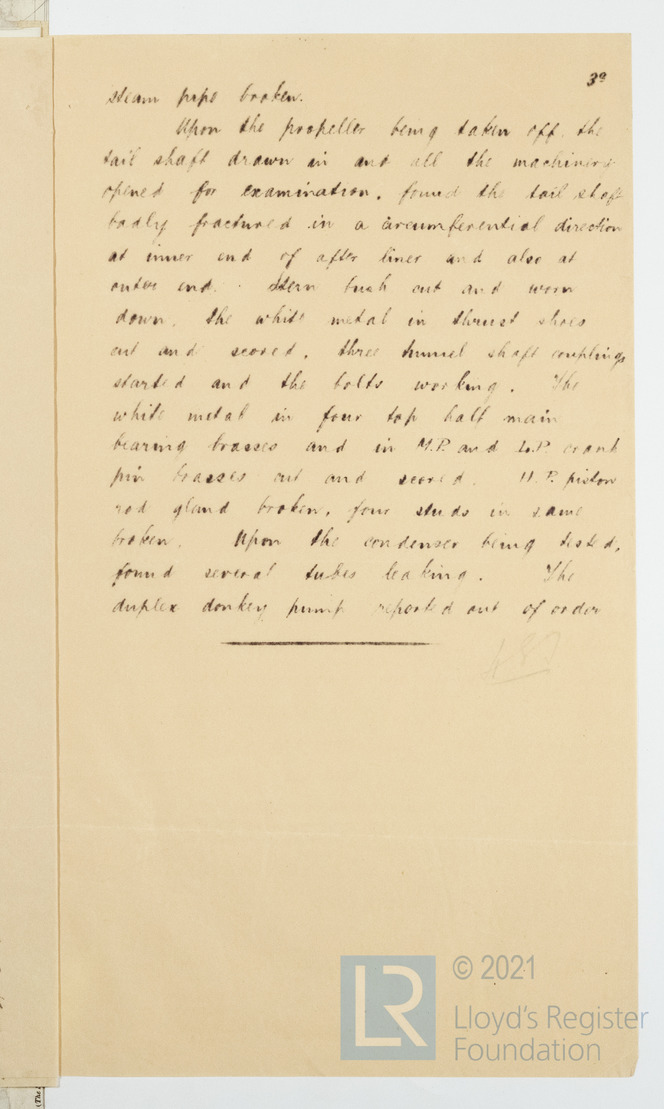 3ª
steam pipe broken.
Upon the propeller being taken off, the
tail shaft drawn in and all the machinery
opened for examination, found the tail shaft
badly fractured in a circumferential direction
at inner end of after liner and also at
outer end. Stern bush cut and worn
down, the white metal in thrust shoes
cut and scored, three tunnel shaft couplings
started and the bolts working. The
white metal in four top half main
bearing brasses and in M.P. and L.P. crank
pin brasses cut and scored. H.P. piston
rod gland broken, four studs in same
broken. Upon the condenser being tested,
found several tubes leaking. The
duplex donkey pump reported out of order
© 2021
LR
Lloyd's Register
Foundation